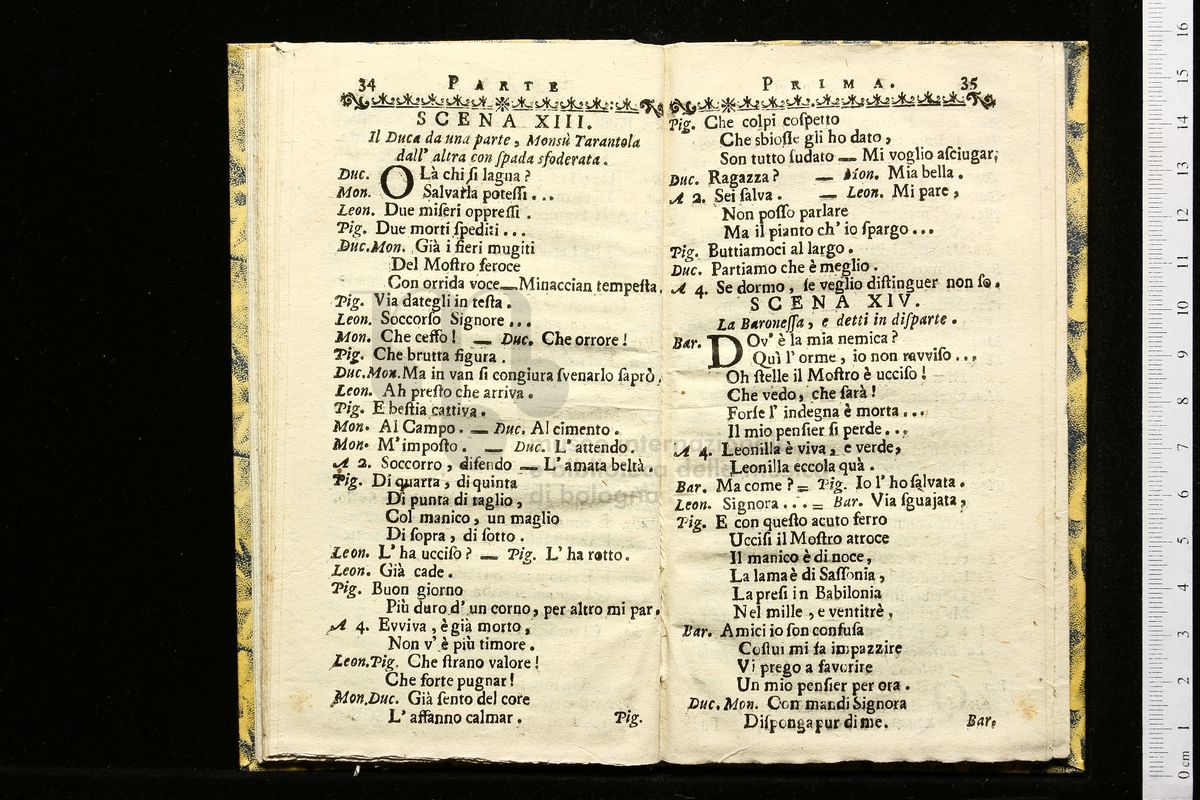 34 PARTE
SCENA XIII.
Il Duca da una parte, Monsù Tarantola
dall' altra con ſpada sfoderata.
Duc. OLà chi ſi lagna?
Mon. Salvarla poteſſi...
Leon. Due miſeri oppreſſi.
Pig. Due morti ſpediti...
Duc.Mon. Già i fieri mugiti
Del Moſtro feroce
Con orrida voce—Minaccian tempeſta.
Pig. Via dategli in teſta.
Leon. Soccorſo Signore...
Mon. Che ceffo! — Duc. Che orrore!
Pig. Che brutta figura.
Duc.Mon. Ma in van ſi congiura ſvenarlo ſaprò,
Leon. Ah preſto che arriva.
Pig. E beſtia cattiva.
Mon. Al Campo. — Duc. Al cimento.
Mon. M' impoſto. — Duc. L' attendo.
A 2. Soccorro, difendo — L' amata beltà.
Pig. Di quarta, di quinta
Di punta di taglio,
Col manico, un maglio
Di ſopra, di ſotto.
Leon. L' ha ucciſo? — Pig. L' ha rotto.
Leon. Già cade.
Pig. Buon giorno
Più duro d' un corno, per altro mi par.
A 4. Evviva, è già morto,
Non v' è più timore.
Leon.Pig. Che ſtrano valore!
Che forte pugnar!
Mon.Duc. Già ſento del core
L' affanno calmar.
Pig.
PRIMA. 35
Pig. Che colpi coſpetto
Che sbioſſe gli ho dato,
Son tutto ſudato — Mi voglio aſciugar;
Duc. Ragazza? — Mon. Mia bella.
A 2. Sei ſalva. — Leon. Mi pare,
Non poſſo parlare
Ma il pianto ch' io ſpargo...
Pig. Buttiamoci al largo.
Duc. Partiamo che è meglio.
A 4. Se dormo, ſe veglio diſtinguer non ſo.
SCENA XIV.
La Baroneſſa, e detti in diſparte.
Bar. DOv' è la mia nemica?
Quì l' orme, io non ravviſo...
Oh ſtelle il Moſtro è ucciſo!
Che vedo, che ſarà!
Forſe l' indegna è morta...
Il mio penſier ſi perde...
A 4. Leonilla è viva, e verde,
Leonilla eccola quà.
Bar. Ma come? = Pig. Io l' ho ſalvata.
Leon. Signora... = Bar. Via ſguajata,
Pig. E con queſto acuto ferro
Ucciſi il Moſtro atroce
Il manico è di noce,
La lama è di Saſſonia,
La preſi in Babilonia
Nel mille, e ventitrè,
Bar. Amici io ſon confuſa
Coſtui mi fa impazzire
Vi prego a favorire
Un mio penſier per ora.
Duc.Mon. Comandi Signora
Diſponga pur di me.
Bar.
museo internazionale
e biblioteca della
di bologna
16
15
14
13
12
11
10
9
8
7
6
5
4
3
2
1
0 cm